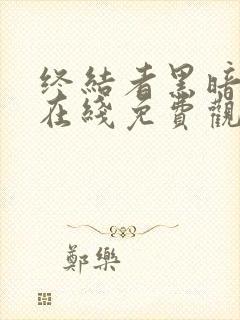 终結者黑暗
在綫免費觀
鄭樂